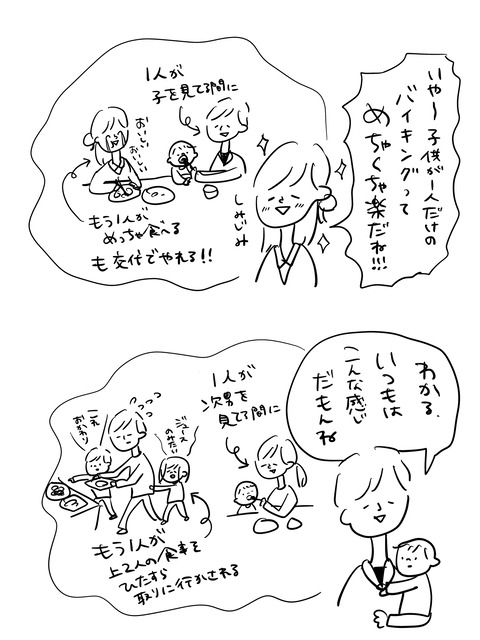 いや〜子供が1人だけの
バイキングって
めちゃくちゃ楽だね!!!
しみじみ
1人が
子を見てる間に
おいしい
おいしい
もう1人が
めっちゃ食べる
も交代でやれる!!
わかる.
いつもは
こんな感じ
だもんね
1人が
次男を
見てる間に
ジュース
のみたい
これ
おかわり
もう1人が
上2人の食事を
ひたすら
取りに行かされる